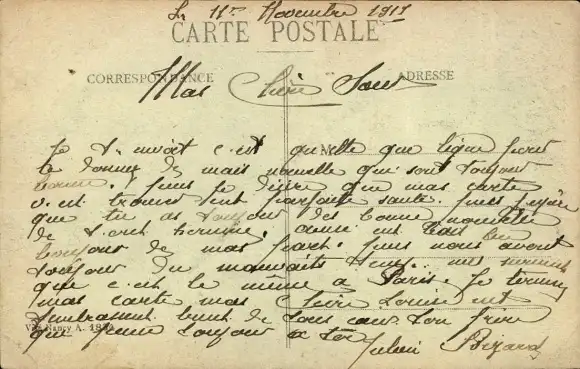 Le 11 Novembre 1917
CARTE POSTALE
CORRESPONDANCE ADRESSE
Mas Chère Soeur
Je t'envoit c'est quelle que ligne pour
te donné de mais nouvelle qui sont toujour
bonne. puis je désire que mas carte
v.et trouve en parfaite santé. puis j'espère
que tu as toujour des bonne nouvelle
de t'ont homme. donne un
bonjour de mas part. puis nous avont
toujour du mauvaits temp.
que c'est le même a Paris. Je termine
mas carte mas Chère Louise en
t'embrassant bient de tous coeur ton frère
qui pense toujour a toi
Vve Nancy A.
Julien Bizard